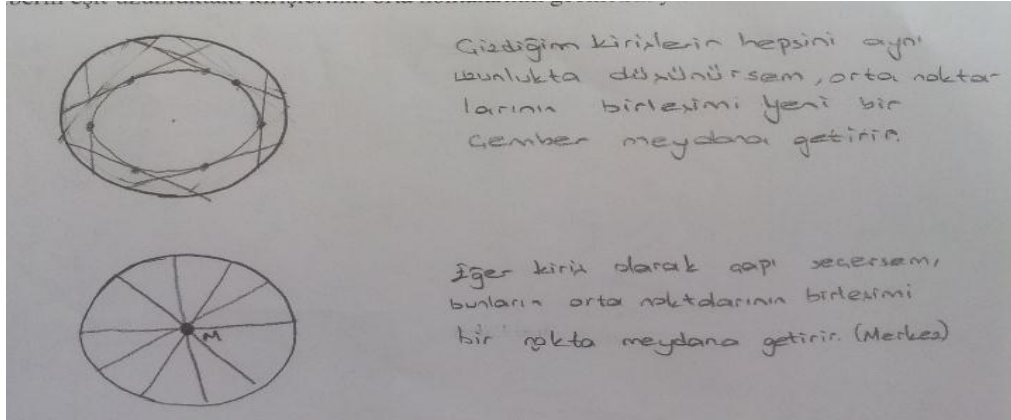 Çizdiğim kirişlerin hepsini aynı
uzunlukta düşünürsem, orta nokta-
larının birleşimi yeni bir
çember meydana getirir.
M
Eğer kiriş olarak çapı seçersem,
bunların orta noktalarının birleşimi
bir nokta meydana getirir. (Merkez)